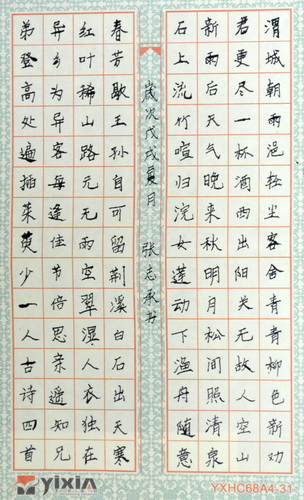 渭城朝雨浥轻尘客舍青青柳色新劝
君更尽一杯酒西出阳关无故人空山
新雨后天气晚来秋明月松间照清泉
石上流竹喧归浣女莲动下渔舟随意
春芳歇王孙自可留荆溪白石出天寒
红叶稀山路元无雨空翠湿人衣独在
异乡为异客每逢佳节倍思亲遥知兄
弟登高处遍插茱萸少一人古诗四首
歲次戊戌夏月 张志承书
YIXIN
YXHC68A4-31